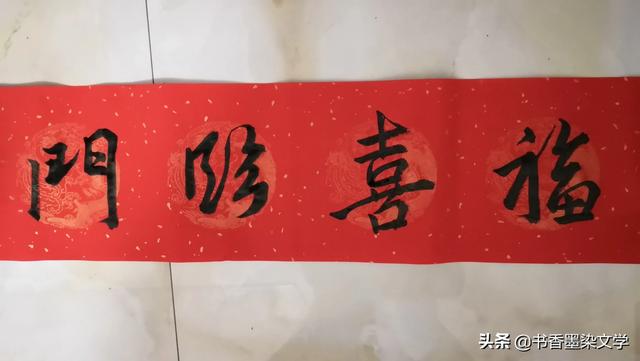 福喜臨門
头条 @书香墨染文学